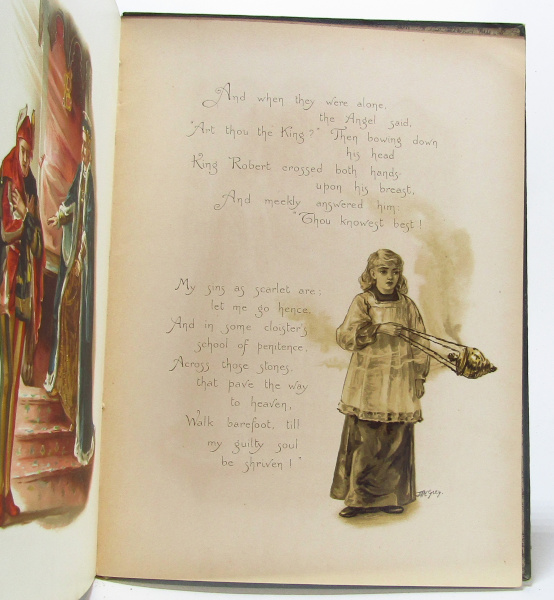 And when they were alone,
the Angel said,
"Art thou the King?" Then bowing down
his head
King Robert crossed both hands
upon his breast,
And meekly answered him:
"Thou knowest best!
My sins as scarlet are;
let me go hence,
And in some cloister's
school of penitence,
Across those stones,
that pave the way
to heaven,
Walk barefoot, till
my guilty soul
be shriven!"